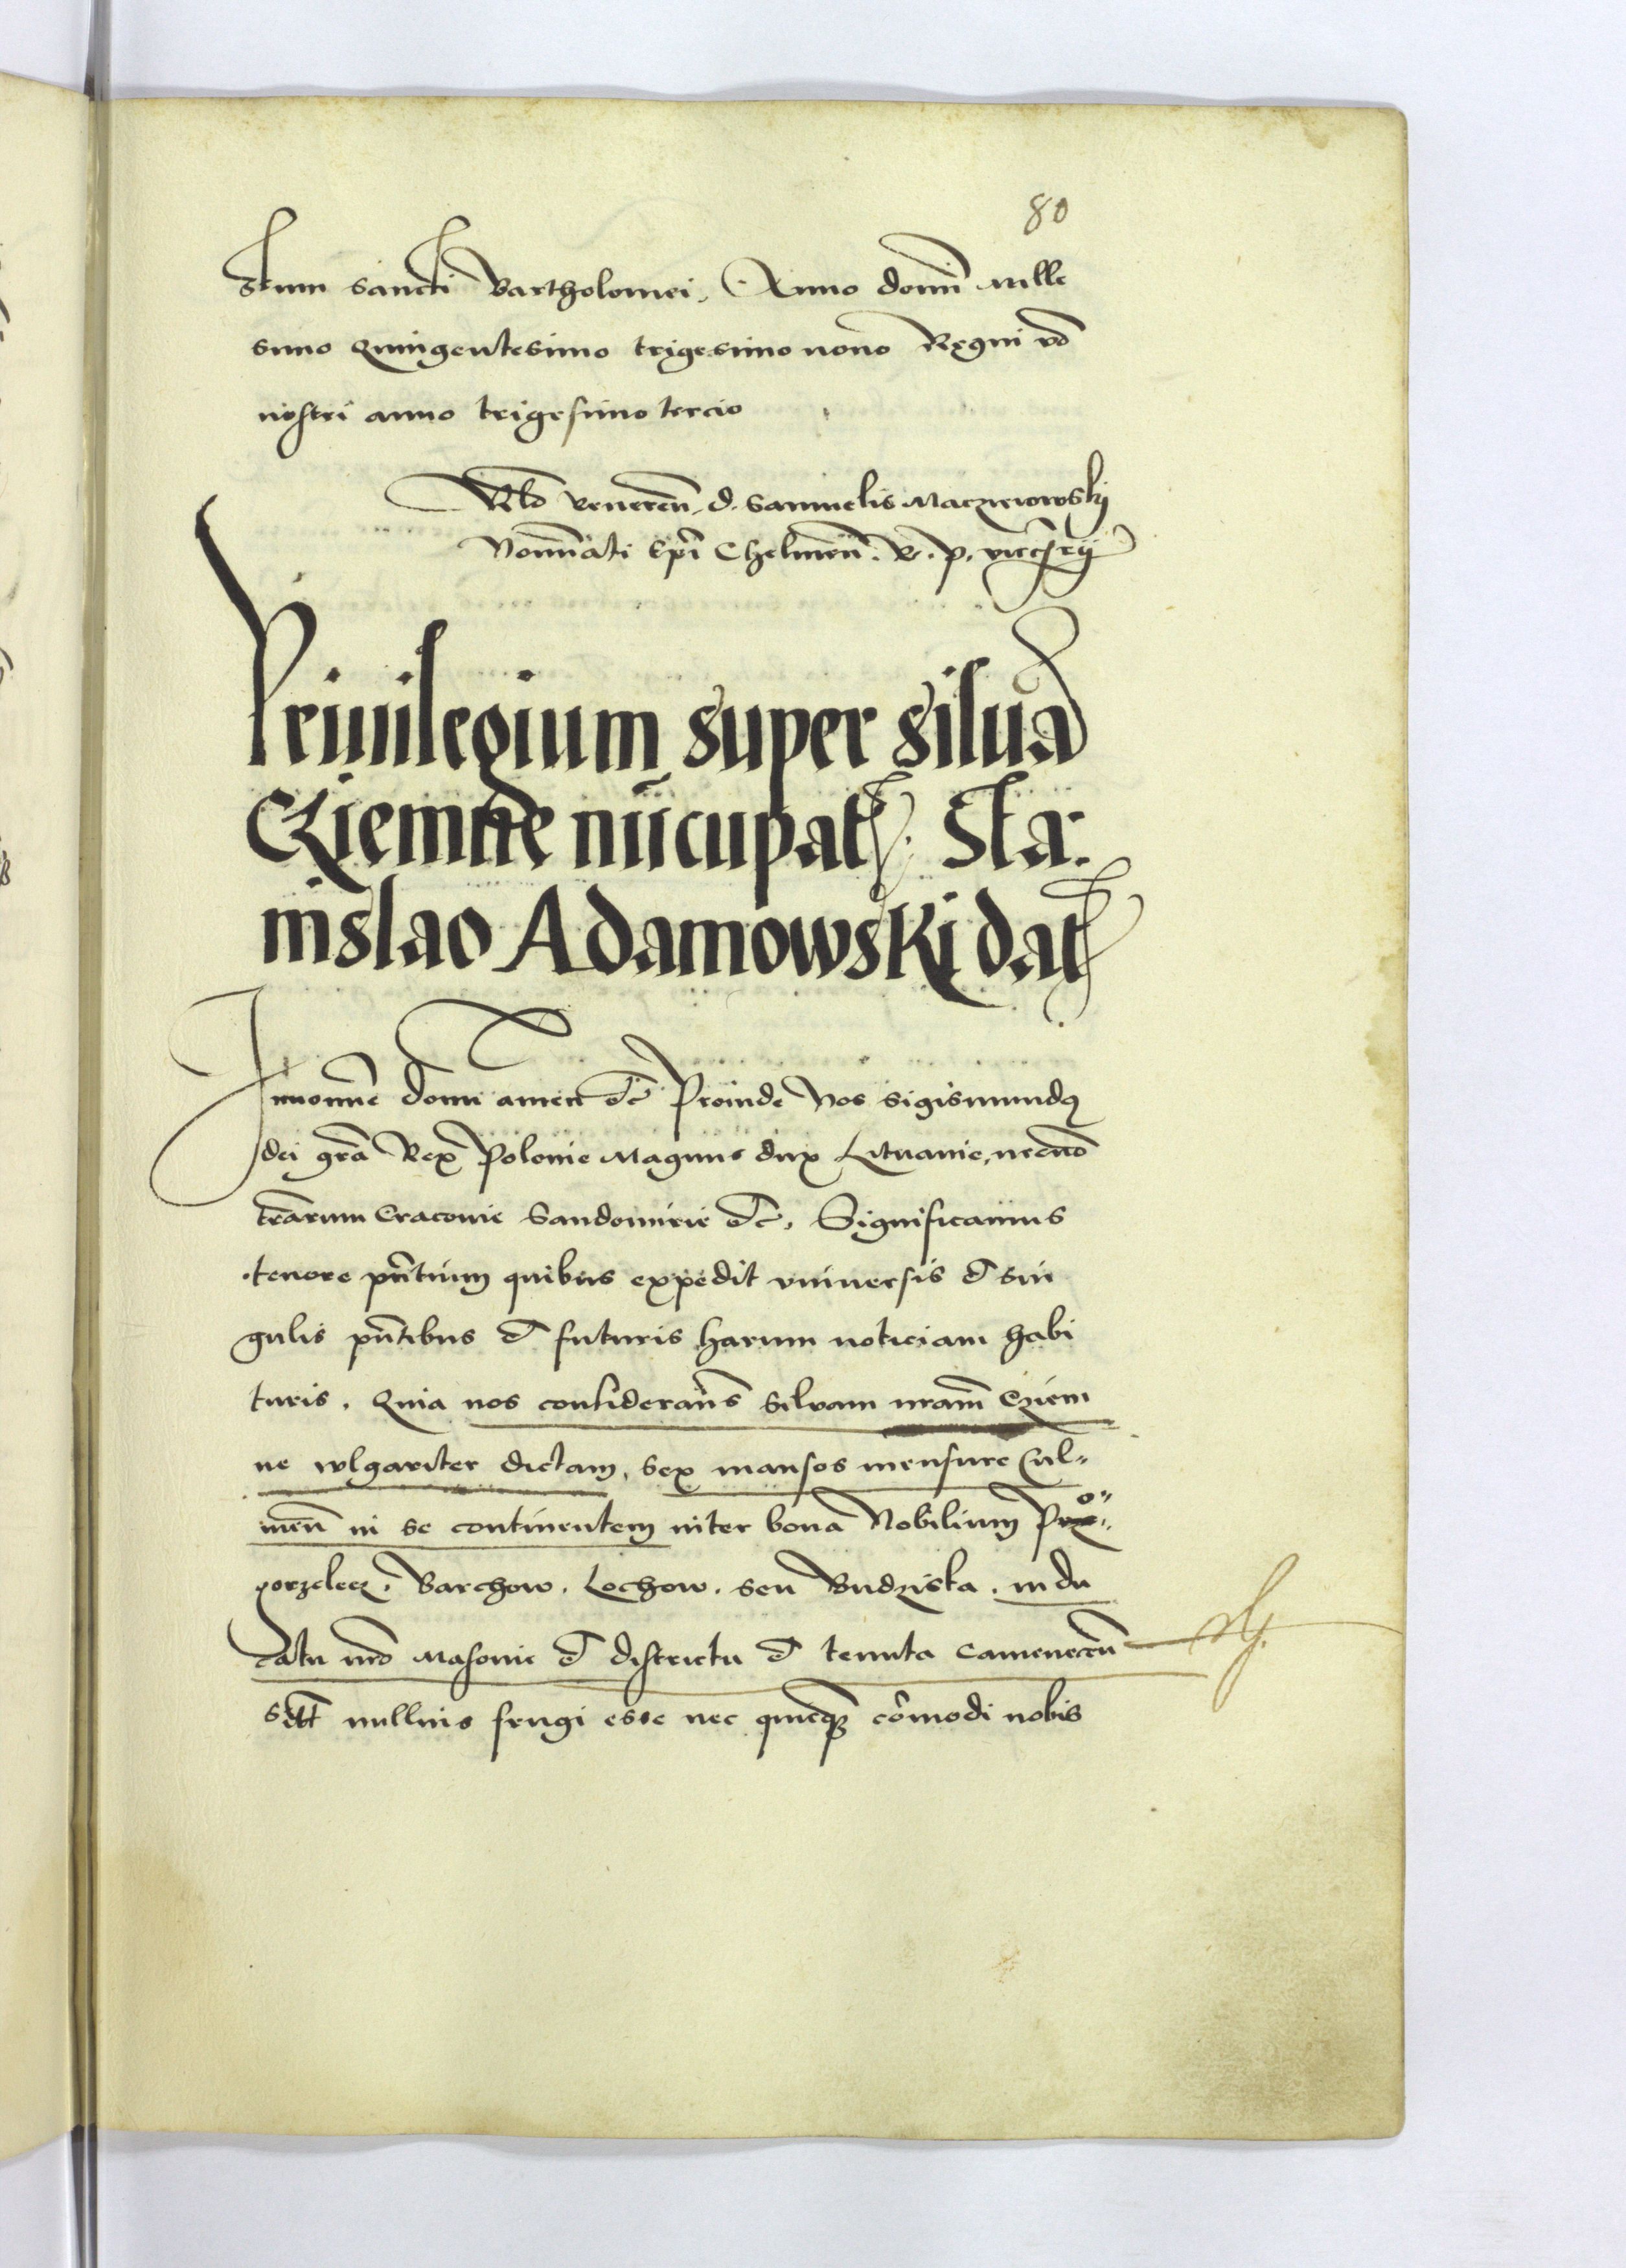 80
stum sancti Bartholomei, Anno domi Mille
simo Quingentesimo trigesimo nono Regni vō
nostri anno trigesimo tercio
Rlō veneren. d. Samuelis Macziewowskÿ
Nomīati Epī Chelmeñ. R. p. viceCrÿ
Privilegium super silua
Cziemne nūcupat. Sta:
nislao Adamowski dat
In noīe domi amen etc̄ Proinde Nos Sigismundus
dei grā Rex Polonie Magnus dux Lituanie, necnō
trārum Cracovie Sandomirie etc̄, Significamus
tenore pn̄tium quibus expedit vniversis et sin
gulis pn̄tibus et futuris harum noticiam habi
turis, Quia nos considerans̄ Silvam nrām Cziem
ne wlgariter dictam, sex mansos mensure Cul-
meñ in se continentem inter bona Nobilium Pro
porzelecz, Barchow, Lochow, seu Budziska, in du
catu nrō Masovie et districtu et tenuta Camenecen̄
nullius frugi esse nec quicq̄ cōmodi nobis